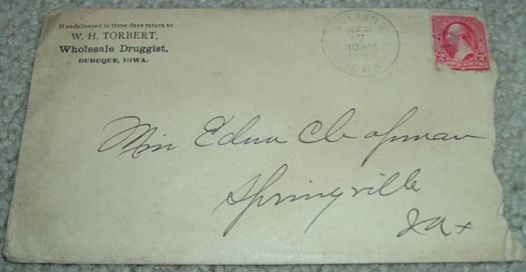 If undelivered in three days return to
W. H. TORBERT,
Wholesale Druggist,
DUBUQUE, IOWA.
SEP
7
Miss Edna Chapman
Springville
Ia